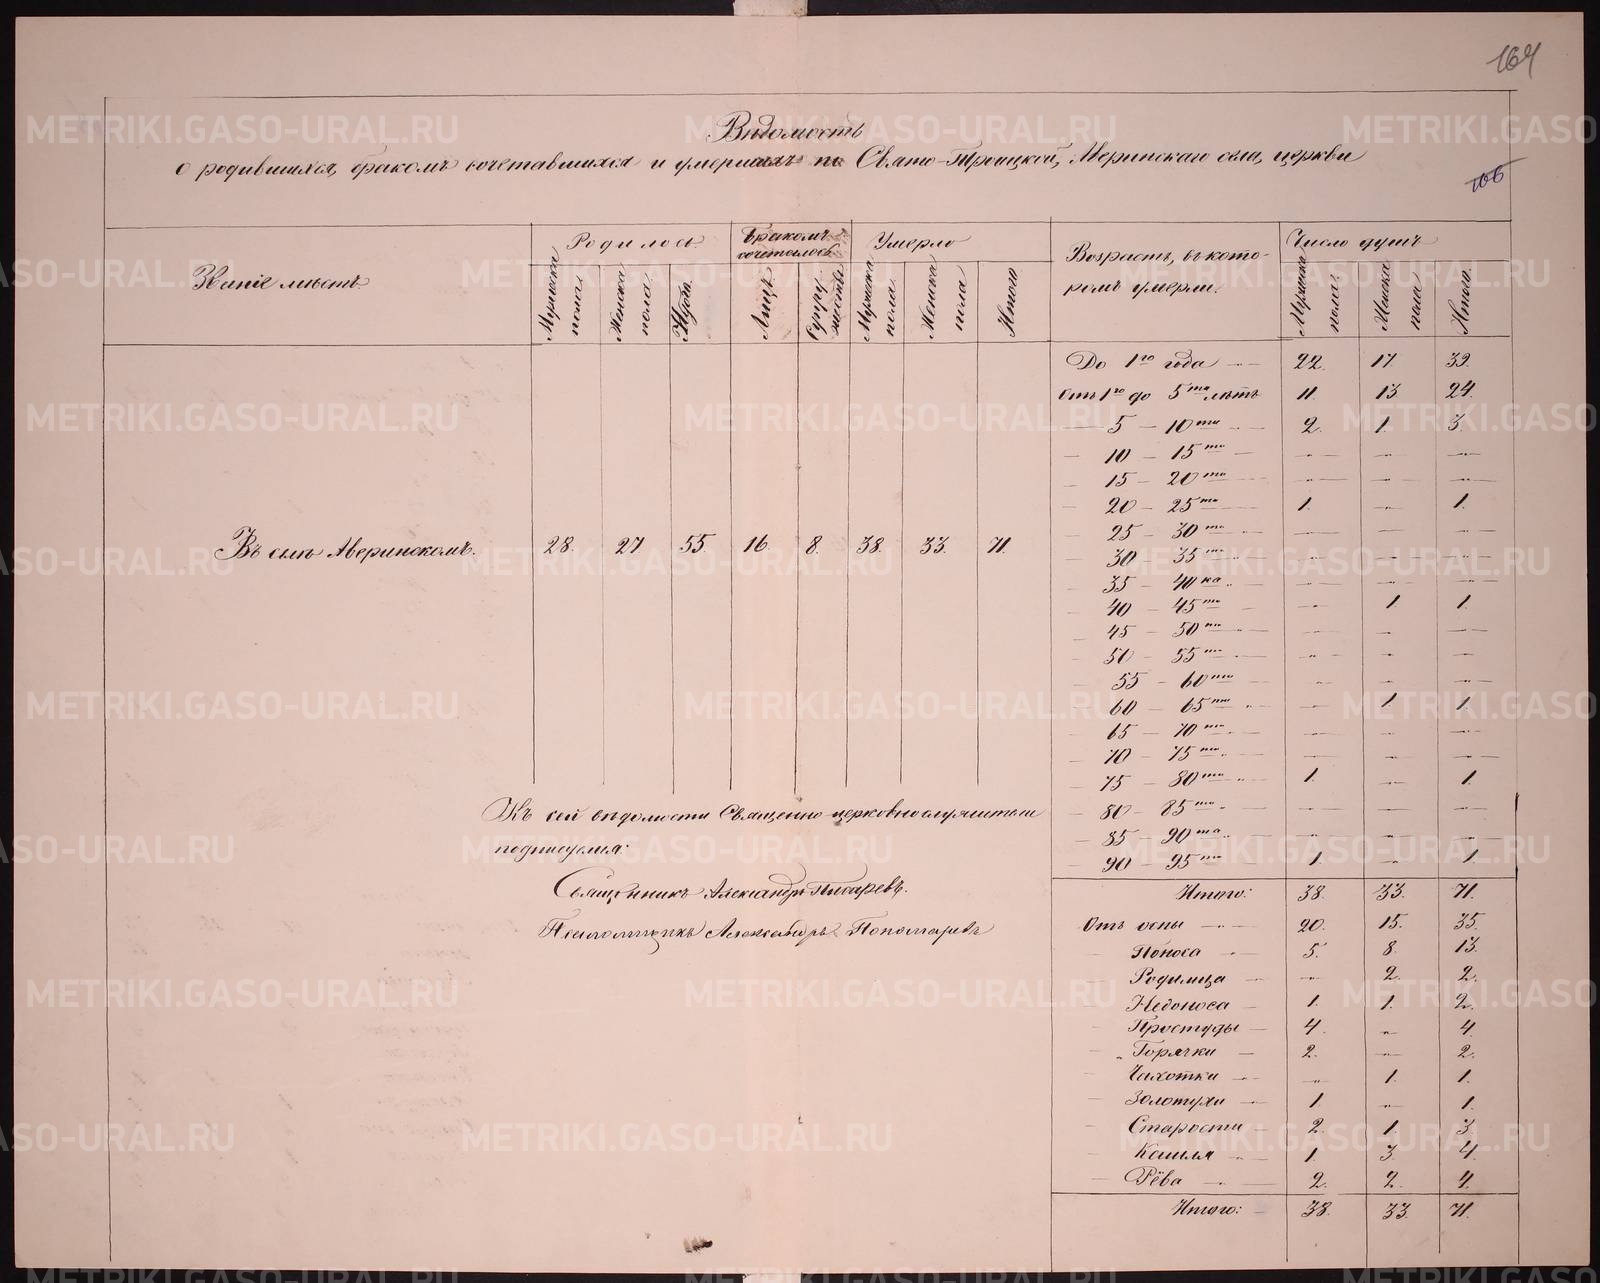 164
Вѣдомость
о родившихся, бракомъ сочетавшихся и умершихъ по Свято-Троицкой, Аверинскаго села, церкви
106
Званіе мѣстъ
Родилось.
Бракомъ сочеталось
Умерло
Возрастъ, въ кото-
ромъ умерли.
Число душъ
Мужска пола.
Женска пола
Итого.
Лицъ
Супружествъ
Мужска пола.
Женска пола
Итого
Мужска пола.
Женска пола
Итого.
До 1го года 22. 17. 39.
Отъ 1го до 5ти лѣтъ 11. 13. 24.
5 – 10ти 2. 1. 3.
10 – 15ти
15 – 20ти
20 – 25ти 1. 1.
25 – 30ти
30 – 35ти
35 – 40ка
40 – 45ти 1. 1.
45 – 50ти
50 – 55ти
55 – 60ти
60 – 65ти 1 1.
65 – 70ти
70 – 75ти
75 – 80ти 1. 1.
80 – 85ти
85 – 90та
90 – 95ти 1. 1.
Въ селѣ Аверинскомъ. 28. 27 55. 16. 8. 38. 33. 71.
Къ сей вѣдомости Священно-церковнослужители
подписуемся:
Священникъ Александръ Пибаревъ.
Псаломщикъ Александръ Пономаревъ
Итого: 38. 33. 71.
Отъ оспы 20. 15. 35.
Поноса 5. 8. 13.
Родимца 2. 2.
Недоноса 1. 1. 2.
Простуды 4. 4.
Горячки 2. 2.
Чахотки 1. 1.
Золотухи 1 1.
Старости 2. 1. 3.
Кашля 1. 3. 4.
Рёва 2. 2. 4.
Итого: 38. 33. 71.
METRIKI.GASO-URAL.RU